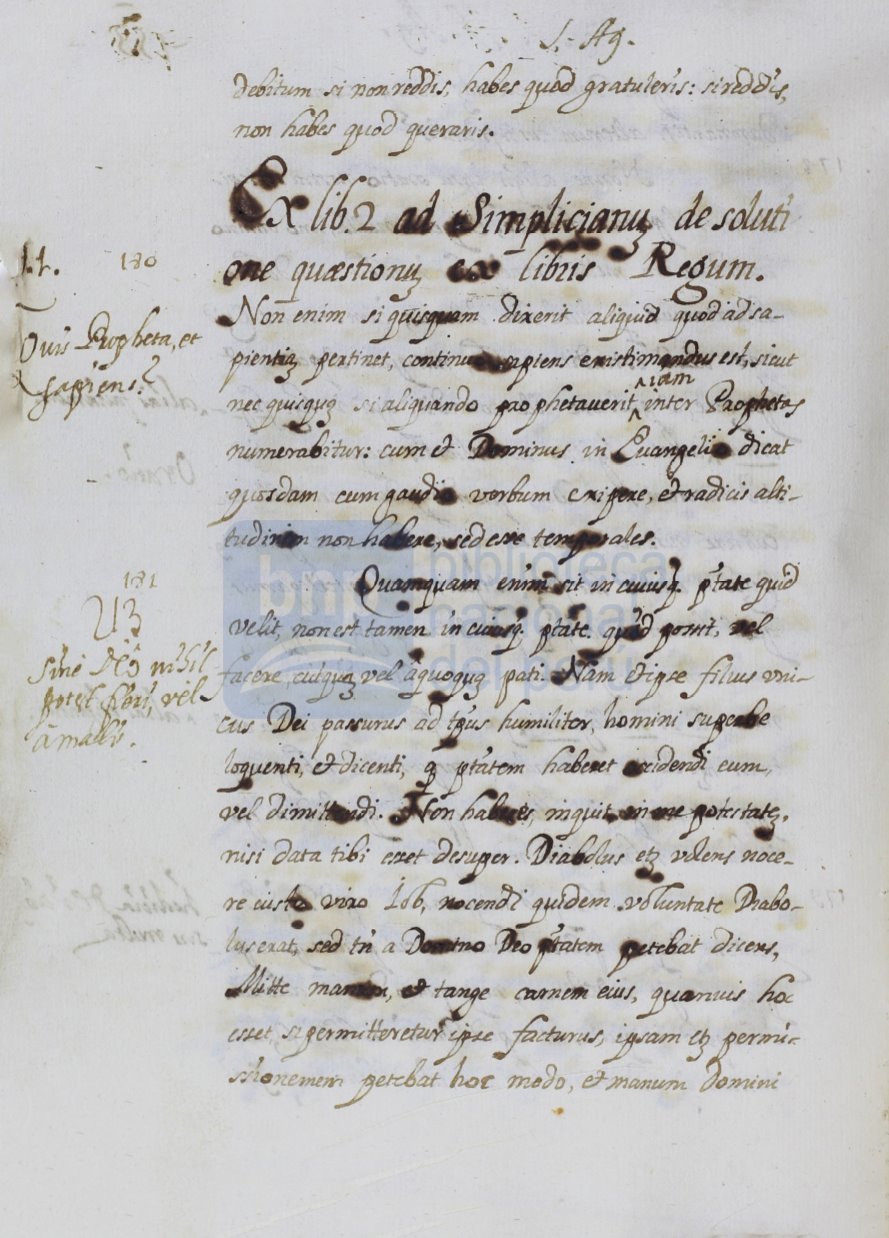 S. Ag.
debitum si non reddis, habes quod gratuleris: si reddis,
non habes quod queraris.
Ex lib. 2 ad Simplicianuȝ de soluti
one quæstionuȝ ex libris Regum.
I.t. 180
Non enim si quisquam dixerit aliquid quod ad sa-
Quis Propheta, et
sapiens?
pientiaȝ pertinet, continuo sapiens existimandus est, sicut
nec quisquȝ si aliquando prophetaverit ^iam inter Prophetas
numerabitur: cum et Dominus in Evangelio dicat
quosdam cum gaudio verbum excipere, et radicis alti-
tudinem non habere, sed esse temporales.
181
Quamquam enim sit in cuiusq. ptãte quid
velit, non est tamen in cuiusq. ptãte quid possit, vel
sine Deo nihil
potest fieri, vel
a malis.
facere cuiquaȝ vel a quoquȝ pati. Nam et ipse filius uni-
cus Dei passurus ad tps humiliter, homini superbe
loquenti, et dicenti, q ptãtem haberet occidendi eum,
vel dimittendi. Non haberes, inquit, in me potestateȝ,
nisi data tibi esset desuper. Diabolus etȝ volens noce-
re iusto viro Iob, nocendi quidem voluntate Diabo-
lus erat, sed tñ a Domino Deo ptãtem petebat dicens,
Mitte manum, et tange carnem eius, quamvis hoc
esset, si permitteretur ipse facturus, ipsam etȝ permi-
ssionemem petebat hoc modo, et manum domini
bnp biblioteca
nacional
del perú